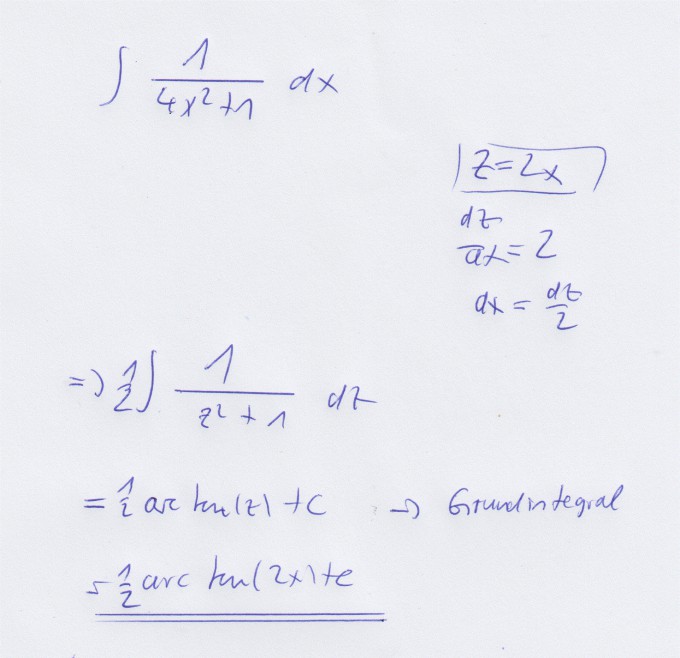 ∫ 1/(4x²+1) dx
z=2x
dz/dx = 2
dx = dz/2
=> 1/2 ∫ 1/(z²+1) dz
= 1/2 arc tan(z) + C → Grundintegral
= 1/2 arc tan(2x) + C